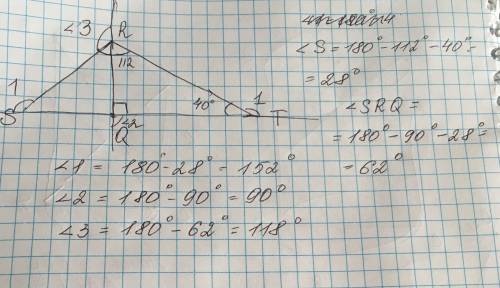 ∠3 R
112
1
S
40°
1
T
∠2
Q
∠S = 180° - 112° - 40° =
= 28°
∠SRQ =
= 180° - 90° - 28° =
= 62°
∠1 = 180° - 28° = 152°
∠2 = 180° - 90° = 90°
∠3 = 180° - 62° = 118°